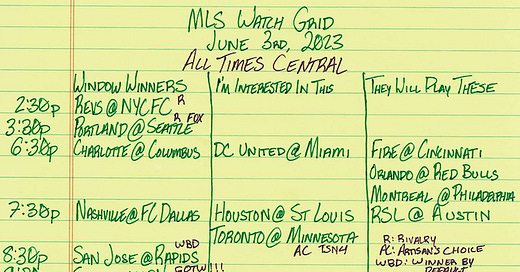 MLS WATCH GRID
JUNE 3RD, 2023
ALL TIMES CENTRAL
WINDOW WINNERS I'M INTERESTED IN THIS THEY WILL PLAY THESE
2:30p REVS @ NYCFC R
3:30p PORTLAND @ SEATTLE R FOX
6:30p CHARLOTTE @ COLUMBUS DC UNITED @ MIAMI FIRE @ CINCINNATI
ORLANDO @ RED BULLS
MONTREAL @ PHILADELPHIA
7:30p NASHVILLE @ FC DALLAS HOUSTON @ ST LOUIS RSL @ AUSTIN
TORONTO @ MINNESOTA
AC TSN4
R: RIVALRY
AC: ARTISAN'S CHOICE
8:30p SAN JOSE @ RAPIDS WBD
WBD: WINNER BY
DEFAULT
GOTW!!!